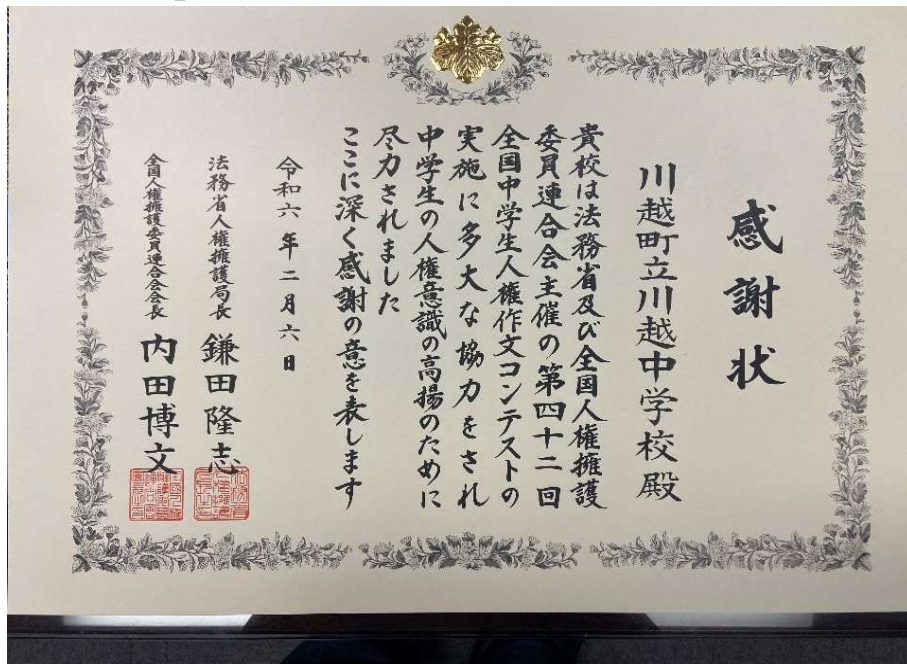 感謝状
川越町立川越中学校殿
貴校は法務省及び全国人権擁護
委員連合会主催の第四十二回
全国中学生人権作文コンテストの
実施に多大な協力をされ
中学生の人権意識の高揚のために
尽力されました
ここに深く感謝の意を表します
令和六年二月六日
法務省人権擁護局長 鎌田隆志
全国人権擁護委員連合会会長 内田博文